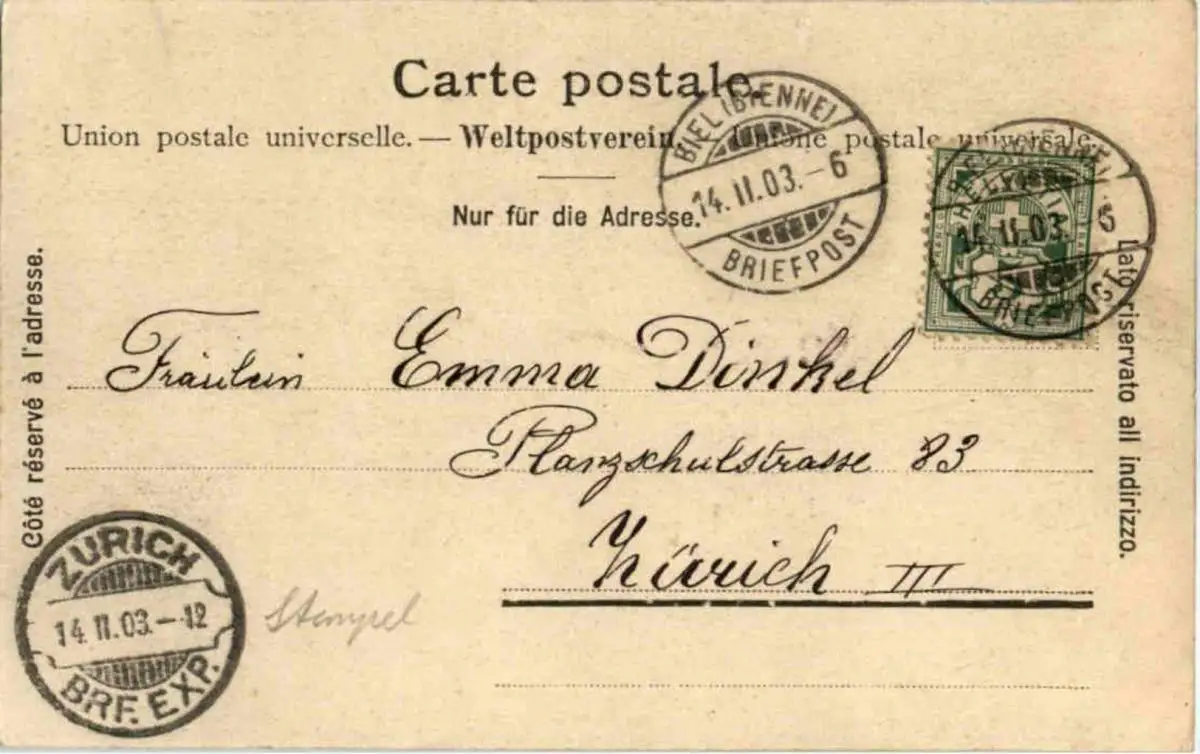 Carte postale.
Union postale universelle. — Weltpostverein. Unione postale universale.
Nur für die Adresse.
BIEL (BIENNE)
14. II. 03. – 6
BRIEFPOST
HELVETIA
14. II. 03. – 6
BRIEFPOST
Côté réservé à l'adresse.
Lato riservato all indirizzo.
Fräulein Emma Dinkel
Planzschulstrasse 83
Zürich III
ZÜRICH
14. II. 03. – 12
BRF. EXP.
Stempel